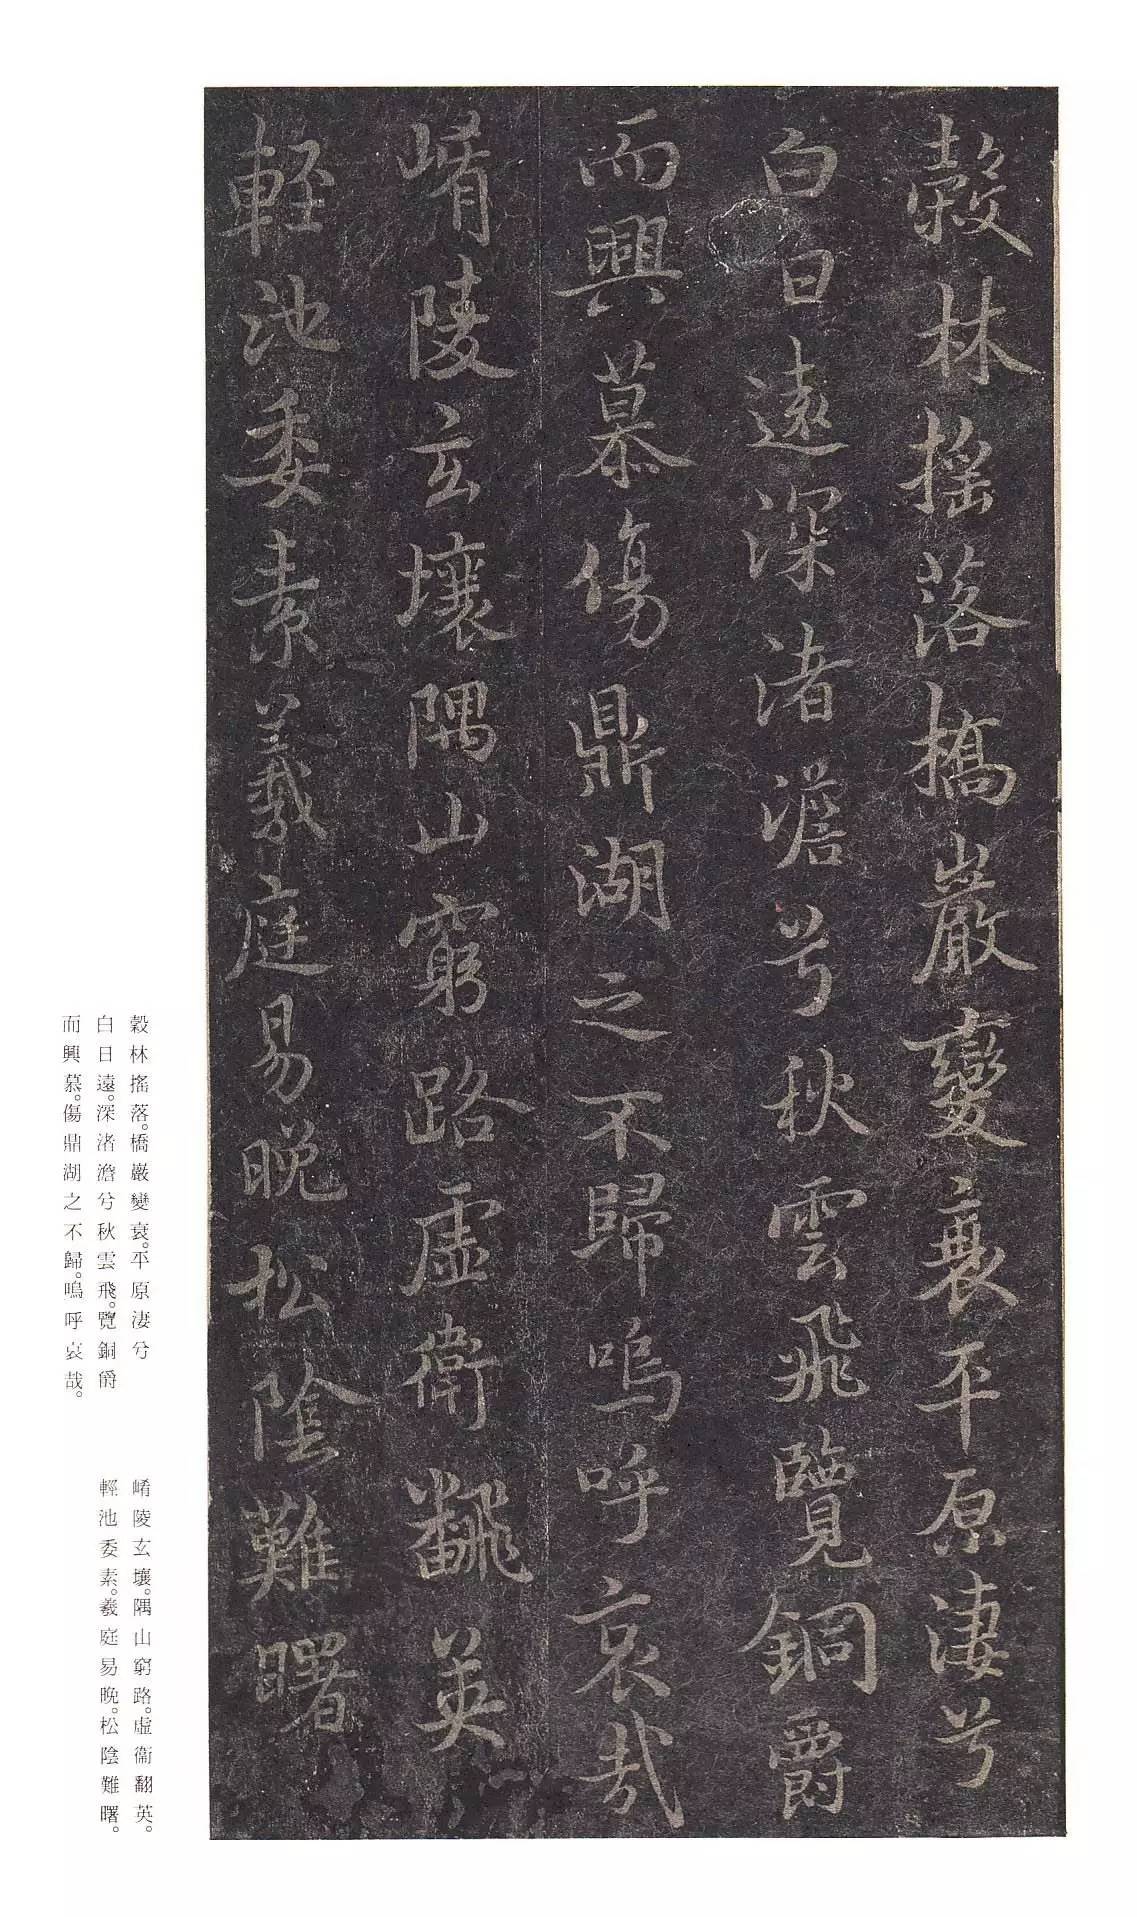 穀林搖落橋巖變衰平原淒兮
白日遠深渚澹兮秋雲飛覽銅爵
而興慕傷鼎湖之不歸嗚呼哀哉
崤陵玄壤隅山窮路虛衛翻英
輕池委素羲庭易晚松陰難曙
穀林搖落。橋巖變衰。平原淒兮
白日遠。深渚澹兮秋雲飛。覽銅爵
而興慕。傷鼎湖之不歸。嗚呼哀哉。
崤陵玄壤。隅山窮路。虛衛翻英。
輕池委素。羲庭易晚。松陰難曙。